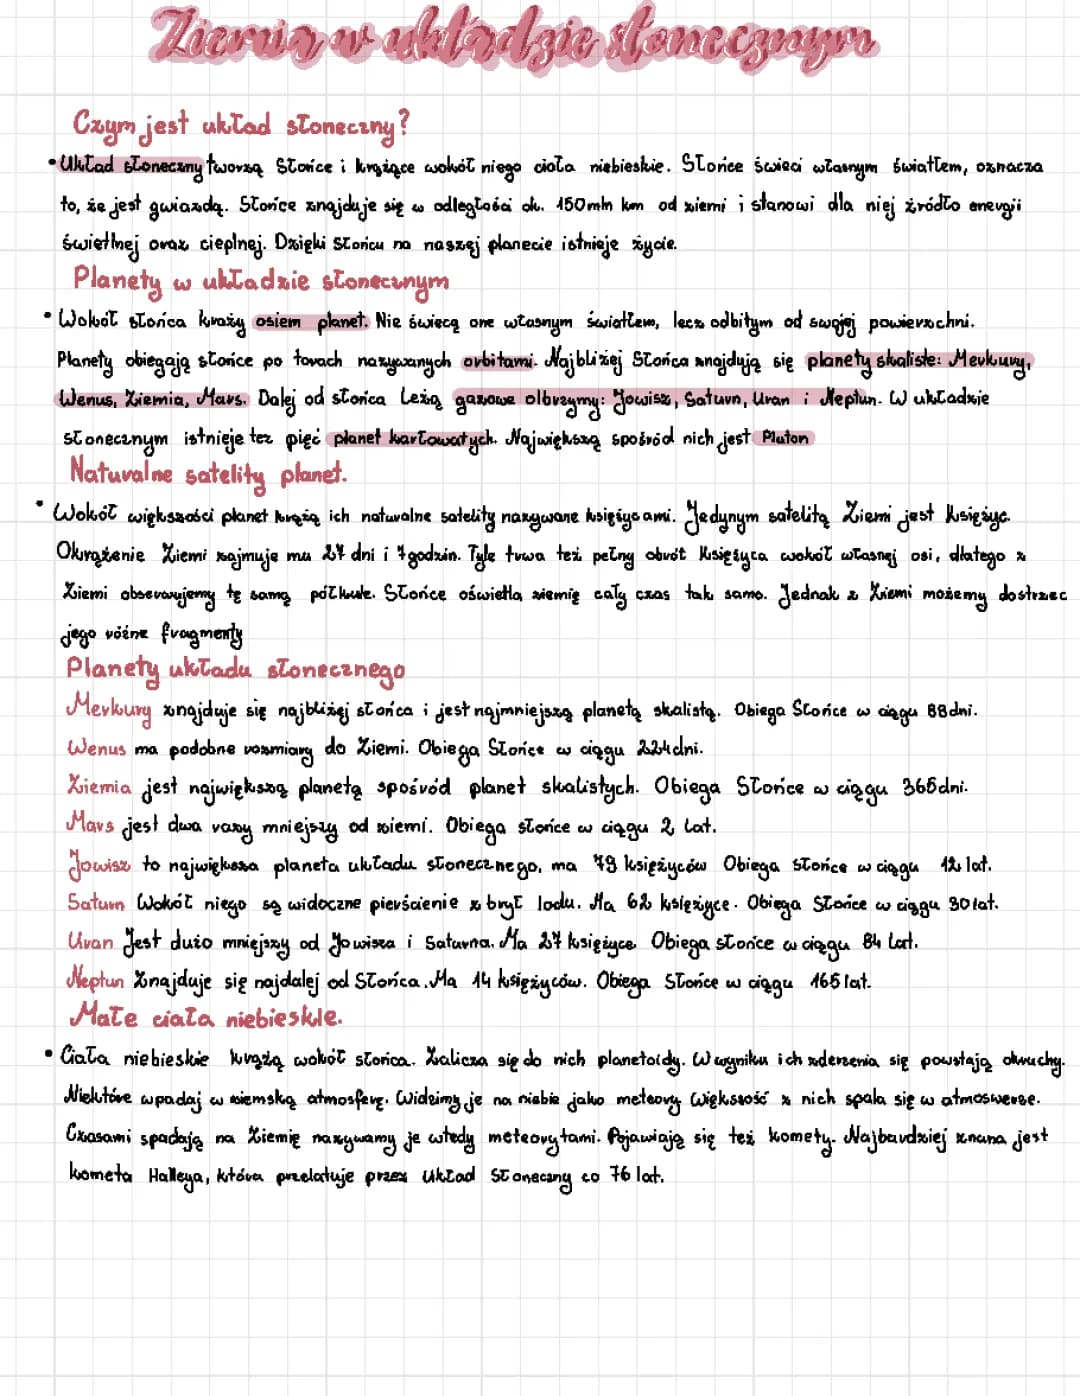 Ziemia w układzie słonecznym
Czym jest układ słoneczny?
•Układ słoneczny tworzą Słońce i krążące wokół niego ciała niebieskie. Słońce świeci własnym światłem, oznacza
to, że jest gwiazdą. Słońce znajduje się w odległości ok. 150mln km od ziemi i stanowi dla niej źródło energii
świetlnej oraz cieplnej. Dzięki Słońcu na naszej planecie istnieje życie.
Planety w układzie słonecznym
• Wokół słońca krąży osiem planet. Nie świecą one własnym światłem, lecz odbitym od swojej powierzchni.
Planety obiegają słońce po torach nazywanych orbitami. Najbliżej Słońca znajdują się planety skaliste: Merkury,
Wenus, Ziemia, Mars. Dalej od słońca Leżą gazowe olbrzymy: Jowisz, Saturn, Uran i Neptun. W układzie
słonecznym istnieje też pięć planet karłowatych. Największą spośród nich jest Pluton
Naturalne satelity planet.
• Wokół większości planet krążą ich naturalne satelity nazywane księżycami. Jedynym satelitą Ziemi jest Księżyc.
Okrążenie Ziemi zajmuje mu 27 dni i 7godzin. Tyle trwa też pełny obrót Księżyca wokół własnej osi, dlatego z
Ziemi obserwujemy tę samą półkule. Słońce oświetla ziemię cały czas tak samo. Jednak z Ziemi możemy dostrzec
jego różne fragmenty
Planety układu słonecznego
Merkury znajduje się najbliżej słońca i jest najmniejszą planetą skalistą. Obiega Słońce w ciągu 88dni.
Wenus ma podobne rozmiary do Ziemi. Obiega Słońce w ciągu 224dni.
Ziemia jest największą planetą spośród planet skalistych. Obiega Słońce w ciągu 365dni.
Mars jest dwa razy mniejszy od ziemi. Obiega słońce w ciągu 2 lat.
Jowisz to największa planeta układu słonecznego, ma 79 księżyców Obiega słońce w ciągu 12 lat.
Saturn Wokół niego są widoczne pierścienie z brył lodu. Ma 62 księżyce. Obiega Słońce w ciągu 30lat.
Uran Jest dużo mniejszy od Jowisza i Saturna. Ma 27 księżyce Obiega słońce w ciągu 84 lat.
Neptun Znajduje się najdalej od Słońca. Ma 14 księżyców. Obiega Słońce w ciągu 165lat.
Małe ciała niebieskie.
• Ciała niebieskie krążą wokół słońca. Zalicza się do nich planetoidy. W wyniku ich zderzenia się powstają okruchy.
Niektóre wpadaj w ziemską atmosferę. Widzimy je na niebie jako meteory Większość z nich spala się w atmoswerze.
Czasami spadają na Ziemię nazywamy je wtedy meteorytami. Pojawiają się też komety. Najbardziej znana jest
kometa Halleya, która przelatuje przez Układ Słoneczny co 76 lat.